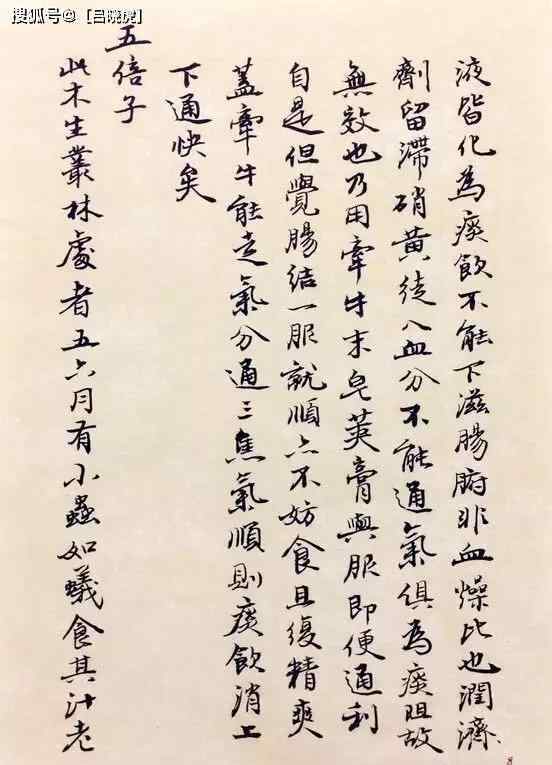 搜狐号@【吕晓虎】
液皆化為痰飲不能下滋腸腑非血燥比也潤濟
劑留滯硝黃徒入血分不能通氣俱為痰阻故
無效也乃用牽牛末皂莢膏與服即便通利
自是但覺腸結一服就順亦不妨食且復精爽
蓋牽牛能走氣分通三焦氣順則痰飲消上
下通快矣
五倍子
此木生叢林處者五六月有小蟲如蟻食其汁老
8